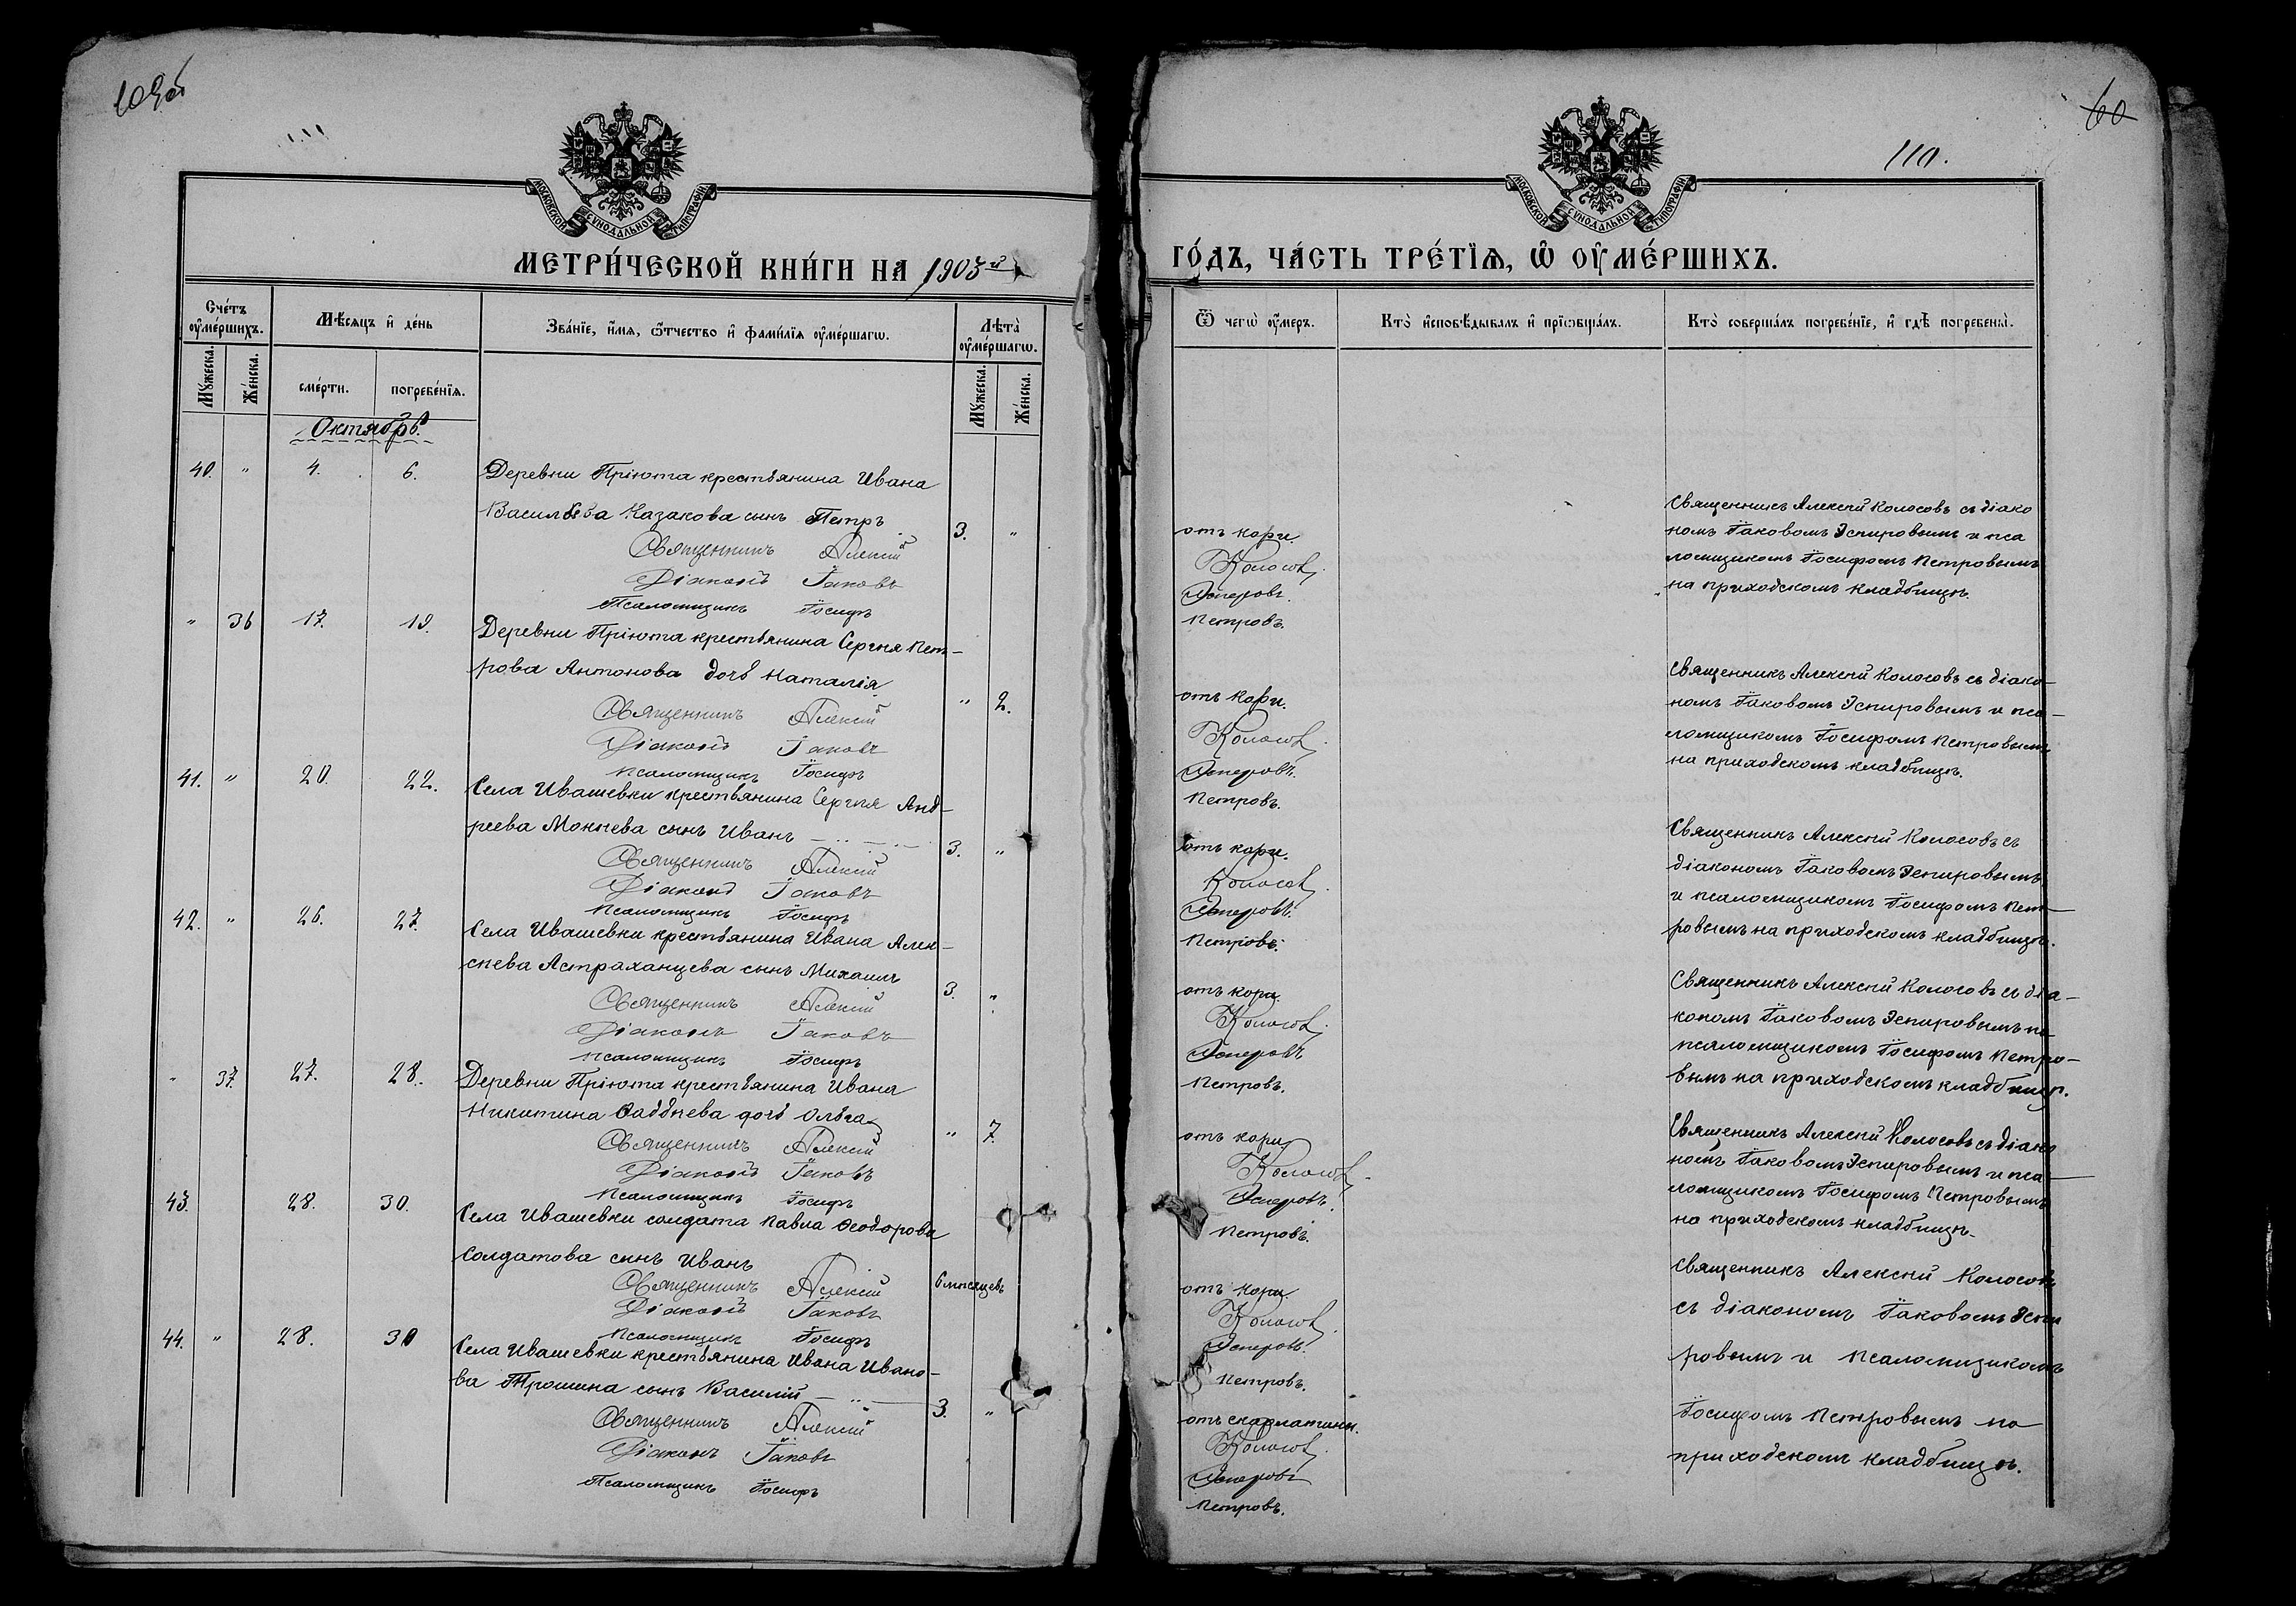 109об
МОСКОВСКОЙ СѴНОДАЛЬНОЙ ТИПОГРАФІИ
МЕТРИ́ЧЕСКОЙ КНИ́ГИ НА 1903й
Сче́тъ оу҆ме́ршихъ.
Мѣ́сяцъ и҆ де́нь
Зва́нїе, и҆́мя, ѻ҆́тчество и҆ фами́лїя оу҆ме́ршагѡ.
Лѣта̀ оу҆ме́ршагѡ.
Му́жеска.
Же́нска.
сме́рти.
погребе́нїя.
Му́жеска.
Же́нска.
Октябрь.
40. " 4. 6. Деревни Пріюта крестьянина Ивана
Васильева Казакова сынъ Петръ 3. "
Священникъ Алексій
Діаконъ Іаковъ
Псаломщикъ Іосифъ
" 36 17. 19. Деревни Пріюта крестьянина Сергѣя Пет-
рова Антонова дочь Наталія " 2.
Священникъ Алексій
Діаконъ Іаковъ
Псаломщикъ Іосифъ
41. " 20. 22. Села Ивашевки крестьянина Сергѣя Анд-
реева Мокѣева сынъ Иванъ 3. "
Священникъ Алексій
Діаконъ Іаковъ
Псаломщикъ Іосифъ
42. " 26. 27. Села Ивашевки крестьянина Ивана Алек-
сѣева Астраханцева сынъ Михаилъ 3. "
Священникъ Алексій
Діаконъ Іаковъ
Псаломщикъ Іосифъ
" 37. 27. 28. Деревни Пріюта крестьянина Ивана
Никитина Ѳаддѣева дочь Ольга " 7.
Священникъ Алексій
Діаконъ Іаковъ
Псаломщикъ Іосифъ
43. 28. 30. Села Ивашевки солдата Павла Ѳеодорова
Солдатова сынъ Иванъ 6 мѣсяцевъ
Священникъ Алексій
Діаконъ Іаковъ
Псаломщикъ Іосифъ
44. " 28. 30 Села Ивашевки крестьянина Ивана Ивано-
ва Трошина сынъ Василій 3. "
Священникъ Алексій
Діаконъ Іаковъ
Псаломщикъ Іосифъ
60
110.
МОСКОВСКОЙ СѴНОДАЛЬНОЙ ТИПОГРАФІИ
ГО́ДЪ, ЧА́СТЬ ТРЕ́ТЇЯ, Ѡ҆ ОУ҆МЕ́РШИХЪ.
Ѿ чегѡ̀ оу҆́меръ.
Кто̀ и҆сповѣ́дывалъ и҆ прїѡбща́лъ.
Кто̀ соверша́лъ погребе́нїе, и҆ гдѣ̀ погребены̀.
от кори.
Колосовъ.
Эспировъ.
Петровъ.
Священникъ Алексѣй Колосовъ съ діако
номъ Іаковомъ Эспировымъ и пса
ломщикомъ Іосифомъ Петровымъ
на приходскомъ кладбищѣ.
отъ кори.
Колосовъ.
Эспировъ.
Петровъ.
Священникъ Алексѣй Колосовъ съ діако-
номъ Іаковомъ Эспировымъ и пса-
ломщикомъ Іосифомъ Петровымъ
на приходскомъ кладбищѣ.
отъ кори.
Колосовъ.
Эспировъ.
Петровъ.
Священникъ Алексѣй Колосовъ съ
діакономъ Іаковомъ Эспировымъ
и псаломщикомъ Іосифомъ Пет-
ровымъ на приходскомъ кладбищѣ.
отъ кори.
Колосовъ.
Эспировъ
Петровъ.
Священникъ Алексѣй Колосовъ съ діа-
кономъ Іаковомъ Эспировымъ
псаломщикомъ Іосифомъ Петро-
вымъ на приходскомъ кладбищѣ.
отъ кори
Колосовъ.
Эспировъ.
Петровъ.
Священникъ Алексѣй Колосовъ съ діако
номъ Іаковомъ Эспировымъ и пса-
ломщикомъ Іосифомъ Петровымъ
на приходскомъ кладбищѣ.
отъ кори
Колосовъ.
Эспировъ.
Петровъ.
Священникъ Алексѣй Колосовъ
съ діакономъ Іаковомъ Эспи
ровымъ и псаломщикомъ
отъ скарлатины.
Колосовъ.
Эспировъ
Петровъ.
Іосифомъ Петровымъ на
приходскомъ кладбищѣ.